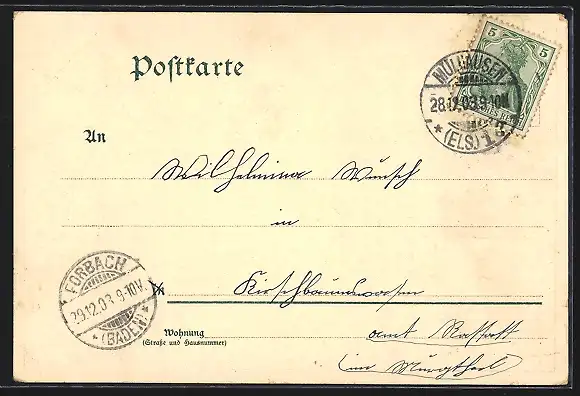 Postkarte
5 5
MÜLHAUSEN
28.12.03.9-10N.
* (ELS) 1 c
An
Wilhelmina Wunsch
in
FORBACH
29.12.03.9-10V.
* (BADEN) *
Kirschbaumwasen
Wohnung
(Straße und Hausnummer)
amt Rastatt
(im Murgthal)